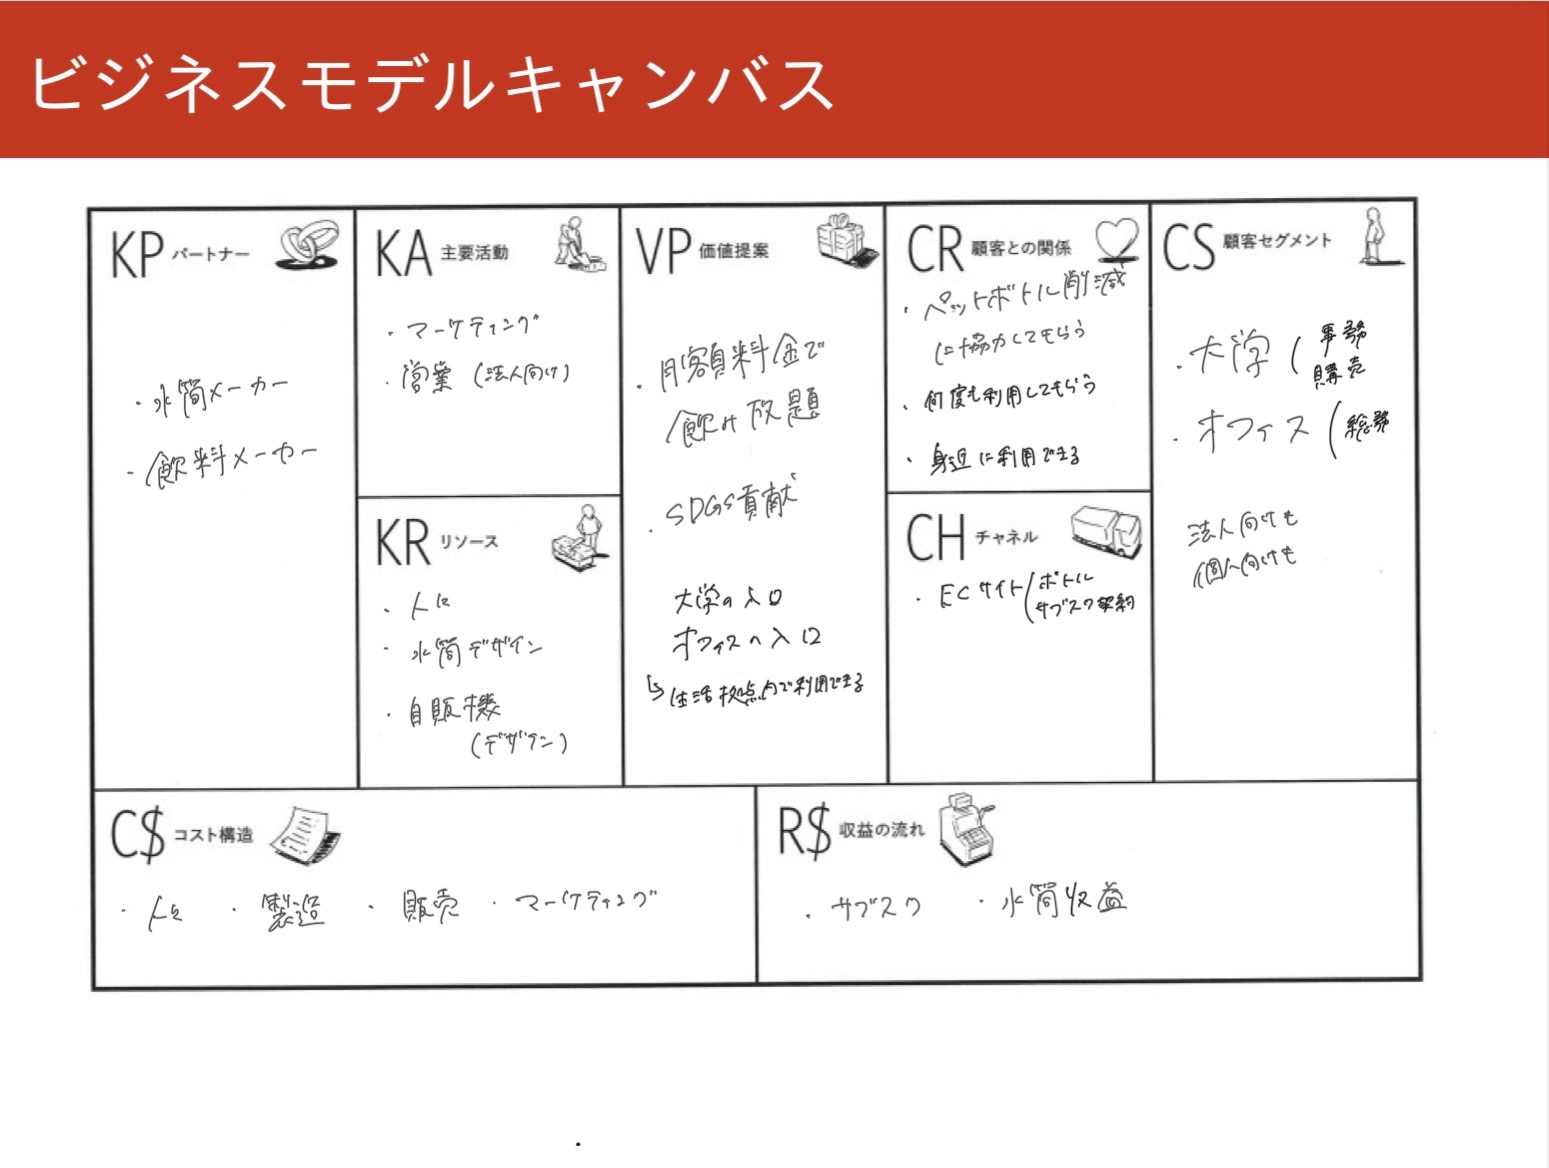 ビジネスモデルキャンバス
KP パートナー
・水筒メーカー
・飲料メーカー
KA 主要活動
・マーケティング
・営業 (法人向け)
KR リソース
・人
・水筒デザイン
・自販機
(デザイン)
VP 価値提案
・月額料金で
飲み放題
・SDGs貢献
大学の入口
オフィスの入口
↳生活拠点内で利用できる
CR 顧客との関係
・ペットボトル削減
に協力してもらう
・何度も利用してもらう
・身近に利用できる
CH チャネル
・ECサイト(ボトル
サブスク契約
CS 顧客セグメント
・大学(事務
購売
・オフィス(総務
法人向けも
個人向けも
C$ コスト構造
・人 ・製造 ・販売 ・マーケティング
R$ 収益の流れ
・サブスク ・水筒収益